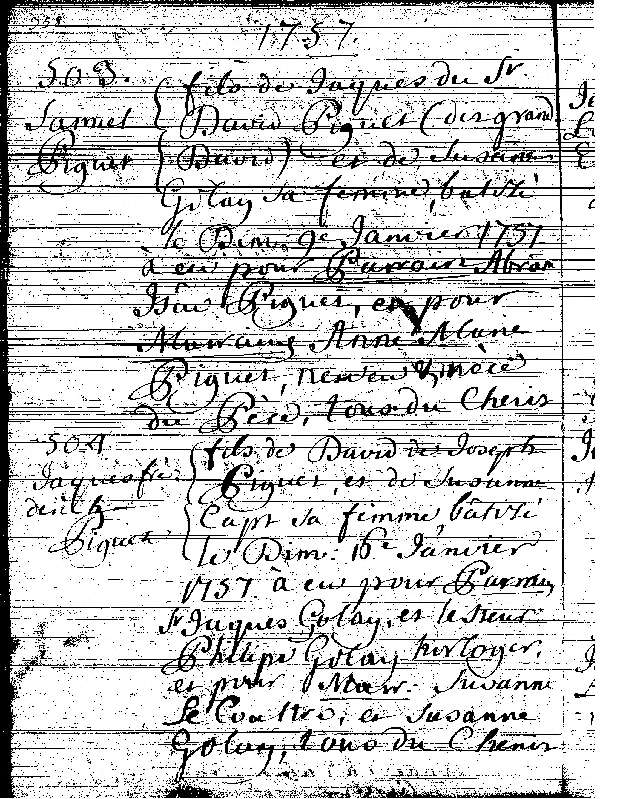 1757.
503.
Samuel
Piguet
fils de Jaques du Sr.
David Piguet (des grand
David) et de Susanne
Golay sa femme, batisé
le Dim. 9e Janvier 1757
à eu pour Parrain Abram
Isac Piguet, et pour
Marraine Anne Marie
Piguet, neveu & niéce
du Père, tous du Chenit
504
Jaques fré-
derich
Piguet
fils de David de Joseph
Piguet, et de Susanne
Capt sa femme, bâtisé
le Dim: 16e Janvier
1757. à eu pour Parrain
Sr. Jaques Golay, et le sieur
Philipe Golay horloger,
et pour Marr: Susanne
Le Coultre, et Susanne
Golay, tous du Chenit